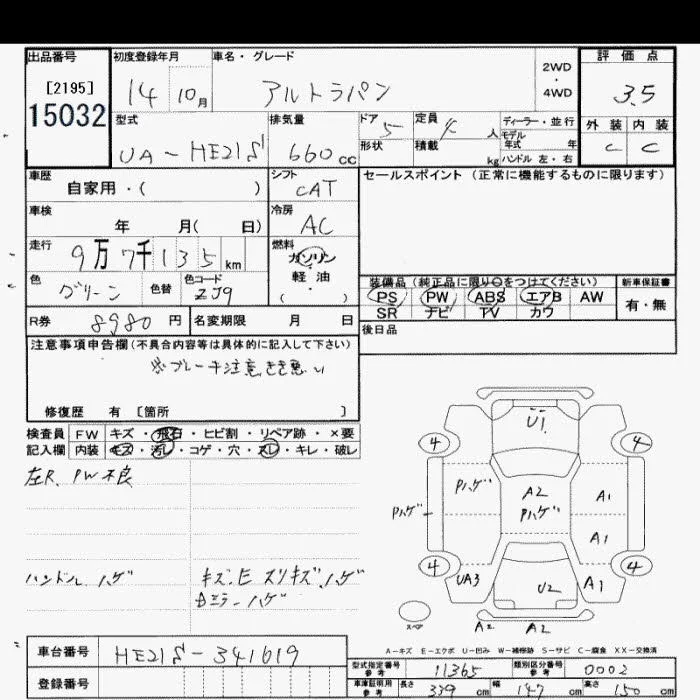 出品番号 初度登録年月 車名・グレード 2WD・4WD 評価点
[2195] 15032 14 10月 アルトラパン 3.5
型式 排気量 ドア 定員 ディーラー・並行 外装 内装
UA-HE21S 660cc 5 4人 モデル年式 年 C C
形状 積載 kg ハンドル 左・右
車歴 シフト セールスポイント (正常に機能するものに限ります)
自家用・( ) CAT
車検 冷房
年 月( 日) AC
走行 燃料
9万7千135km ガソリン・軽油
( )
色 色替 色コード 装備品 (純正品に限り○をつけてください) 新車保証書
グリーン ZJ9 PS PW ABS エアB AW 有・無
SR ナビ TV カワ
R券 8980円 名変期限 月 日 後日品
注意事項申告欄(不具合内容等は具体的に記入して下さい)
※ブレーキ注意きき悪い
修復歴 有 [箇所 ]
検査員 FW キズ・飛石・ヒビ割・リペア跡・×要
記入欄 内装 キズ・汚レ・コゲ・穴・スレ・キレ・破レ
左R、PW不良
ハンドル、ハゲ
キズ、E スリキズ、ハゲ
ミラーハゲ
U1
4 4
Pハゲ A2 A1
Pハゲ Pハゲ
A1
4 UA3 U2 A1 4
スペア A2 A2
A-キズ E-エクボ U-凹み W-補修跡 S-サビ C-腐食 XX-交換済
車台番号 HE21S-341619
登録番号
型式指定番号 参考 11365 類別区分番号 参考 0002
車庫証明用 参考 長さ 339cm 幅 147cm 高さ 150cm